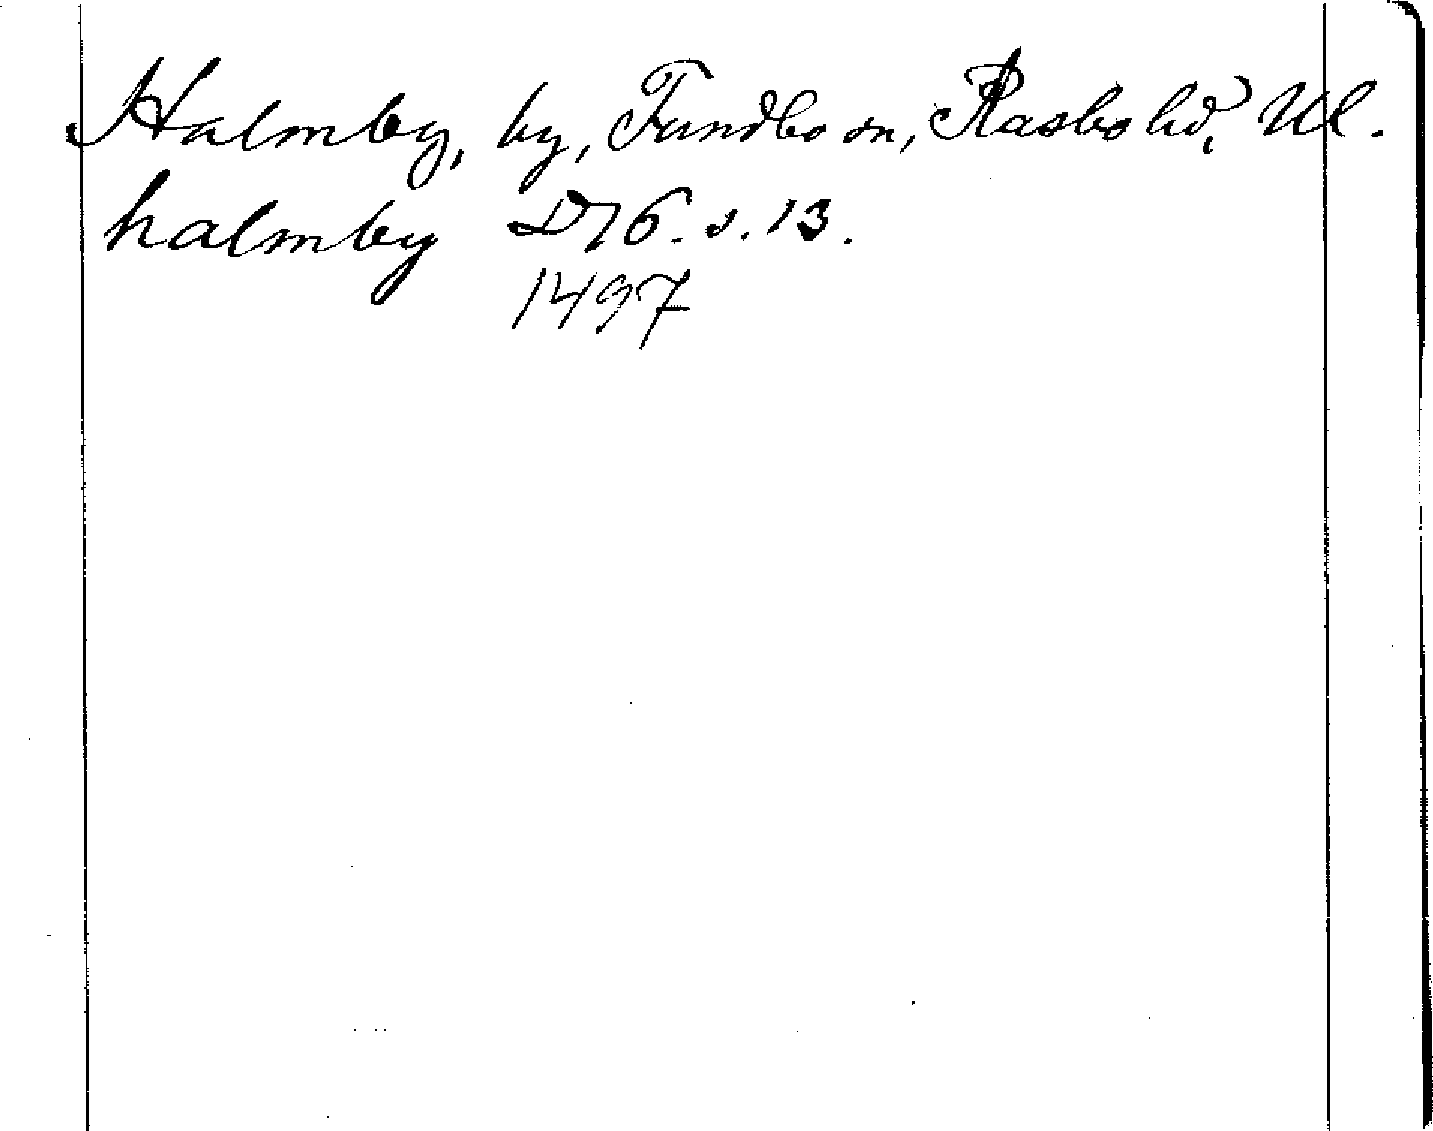 Halmby, by, Fundbo sn, Rasbo hd, Ul.
halmby D76. s. 13.
1497